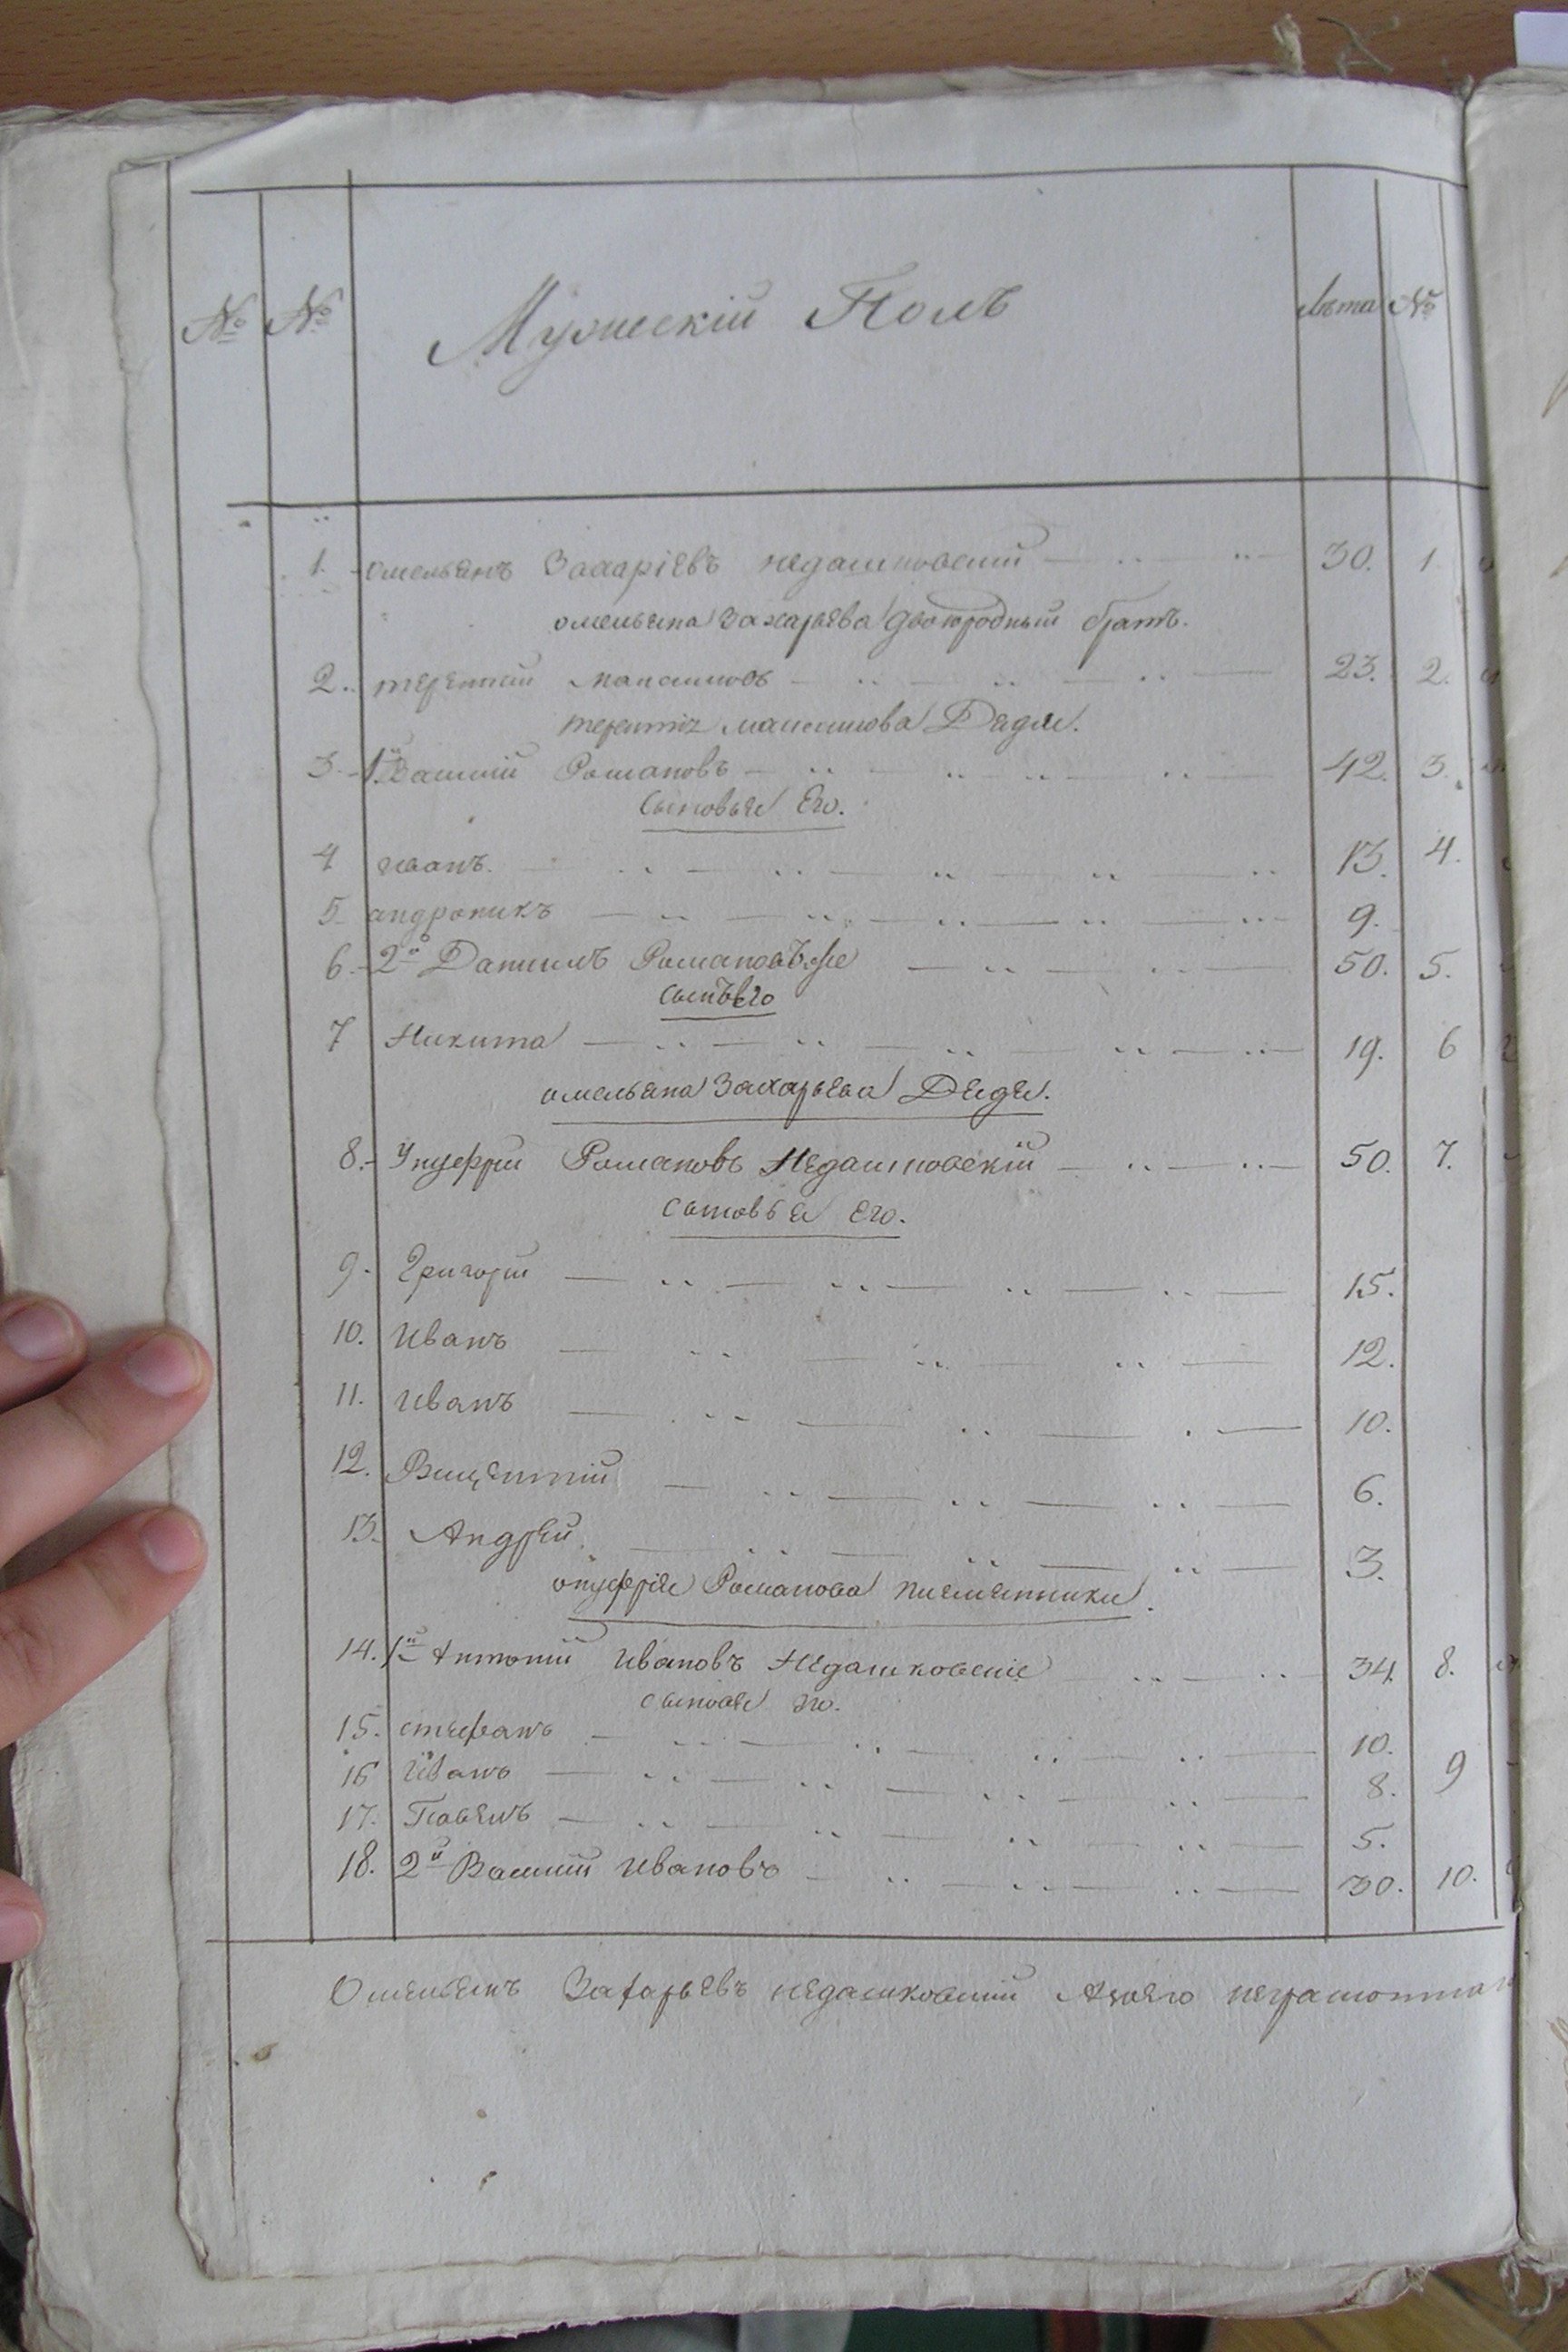 № № Мужескій Полъ лѣта №
1. омельянъ Захаріевъ недашковский 30. 1
омельяна Захарьева двоюродный братъ.
2. терентий максимовъ 23. 2.
терентія максимова Дядя.
3 1й Василій Романовъ 42. 3.
Сыновья Его.
4 иванъ. 13. 4.
5 андроникъ 9.
6. 2й Данилъ Романовъ же 50. 5.
сынъ Его
7 Никита 19. 6
омельяна Захарьева Дядя.
8. Унуфрий Романовъ Недашковскій 50. 7.
сыновья Его.
9. Григорий 15.
10. Иванъ 12.
11. Иванъ 10.
12. Вицентий 6.
13. Андрей 3.
онуфрія Романова племенники.
14. 1й Антоний Ивановъ Недашковскіе 34. 8.
сыновя эго.
15. стефанъ 10.
16 Иванъ 8. 9
17. Павелъ 5.
18. 2й Василий Ивановъ 30. 10.
Омельянъ Захарьевъ недашковский